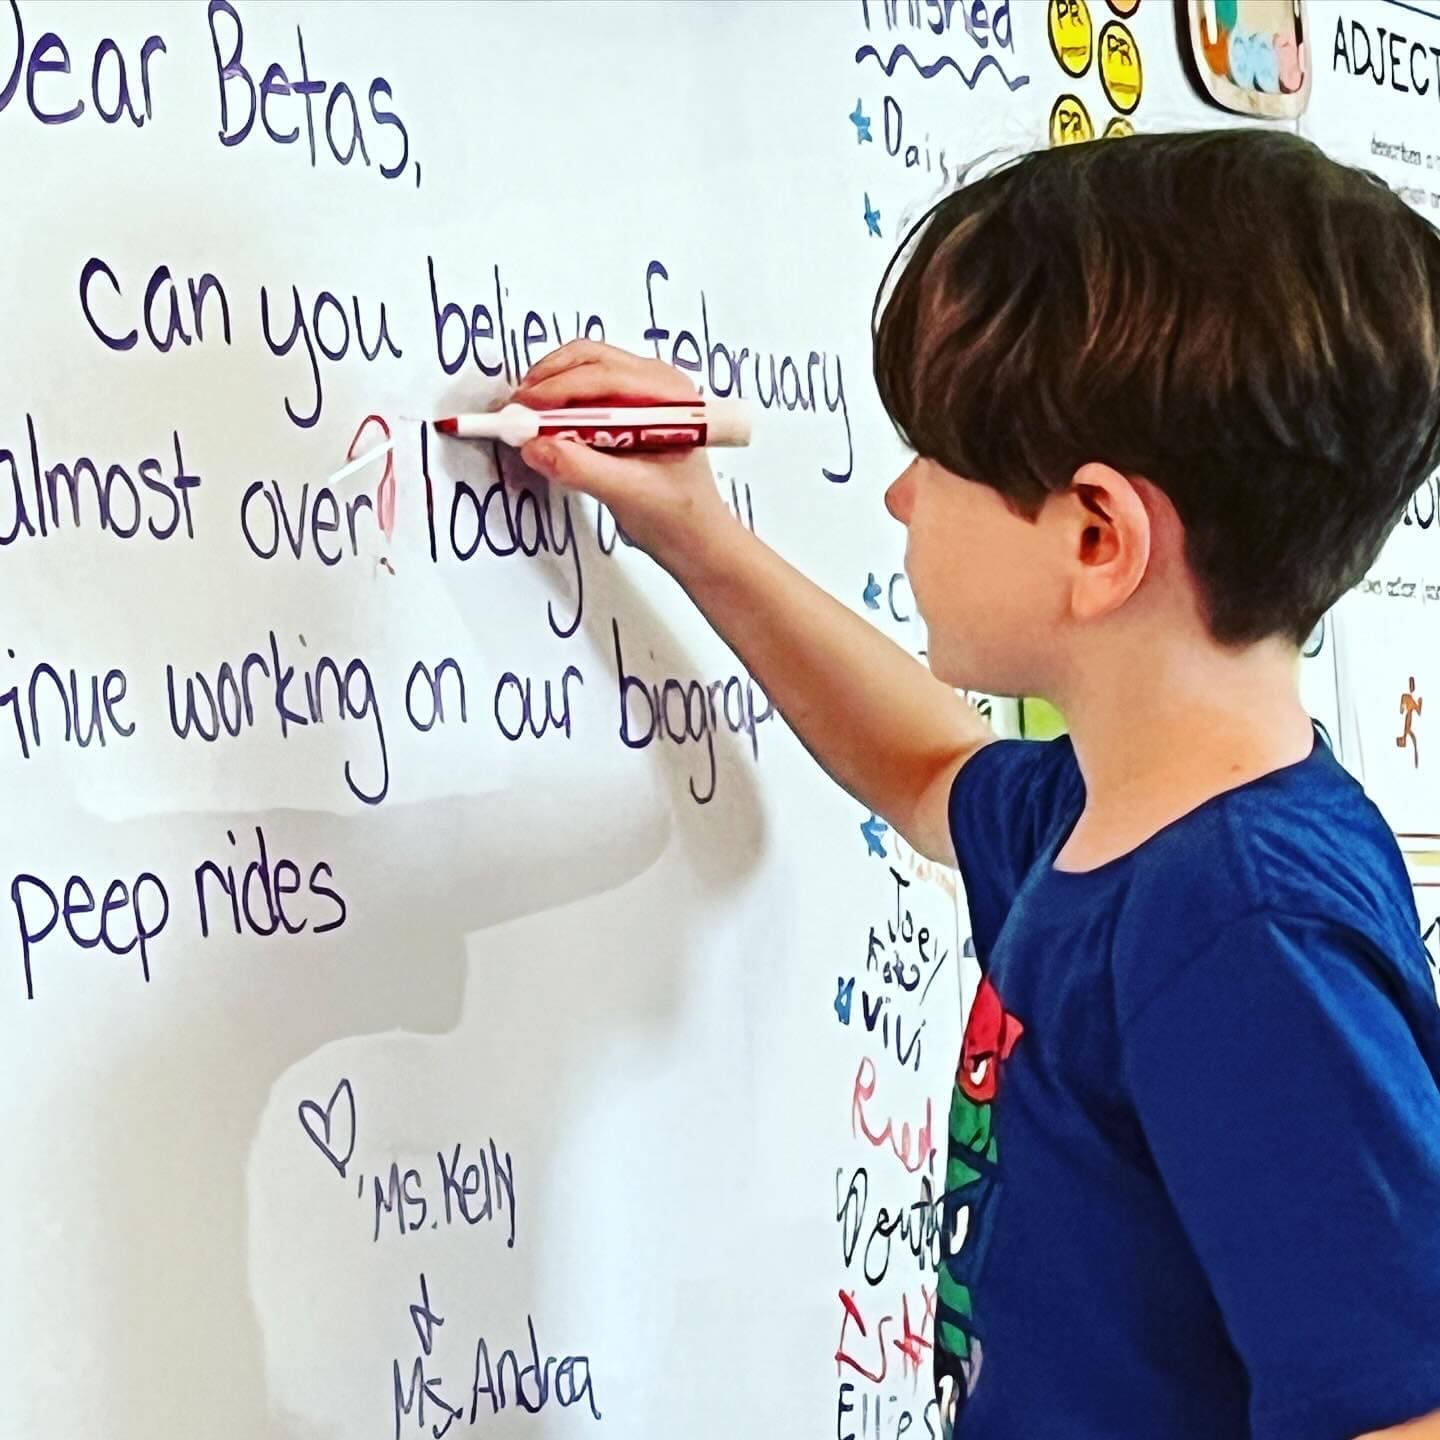 Dear Betas,
can you believe february
almost over? Today
inue working on our biograp
peep rides
Ms. Kelly
&
Ms. Andrea
Finished
Dais
Joel
Kate/
Vivi
Ellies
PR
PR
PR
ADJECT